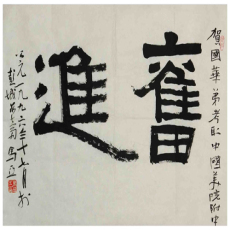 賀國華弟考取中國美院附中
奮進
公元一九九六年十二月於
彭城
馬亞